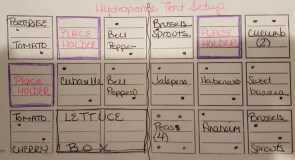 Hydroponic Tent Setup
PORTERISE
TOMATO
PLACE
HOLDER
Bell
Pepper
Brussels
Sprouts
PLACE
HOLDER
Cucumb
(2)
PLACE
HOLDER
Cubanelle
Bell
Pepper
Jalepeno
Habanero
Sweet
banana
TOMATO
CHERRY
LETTUCE
BOX
Peas
(4)
Anaheim
Brussels
Sprouts